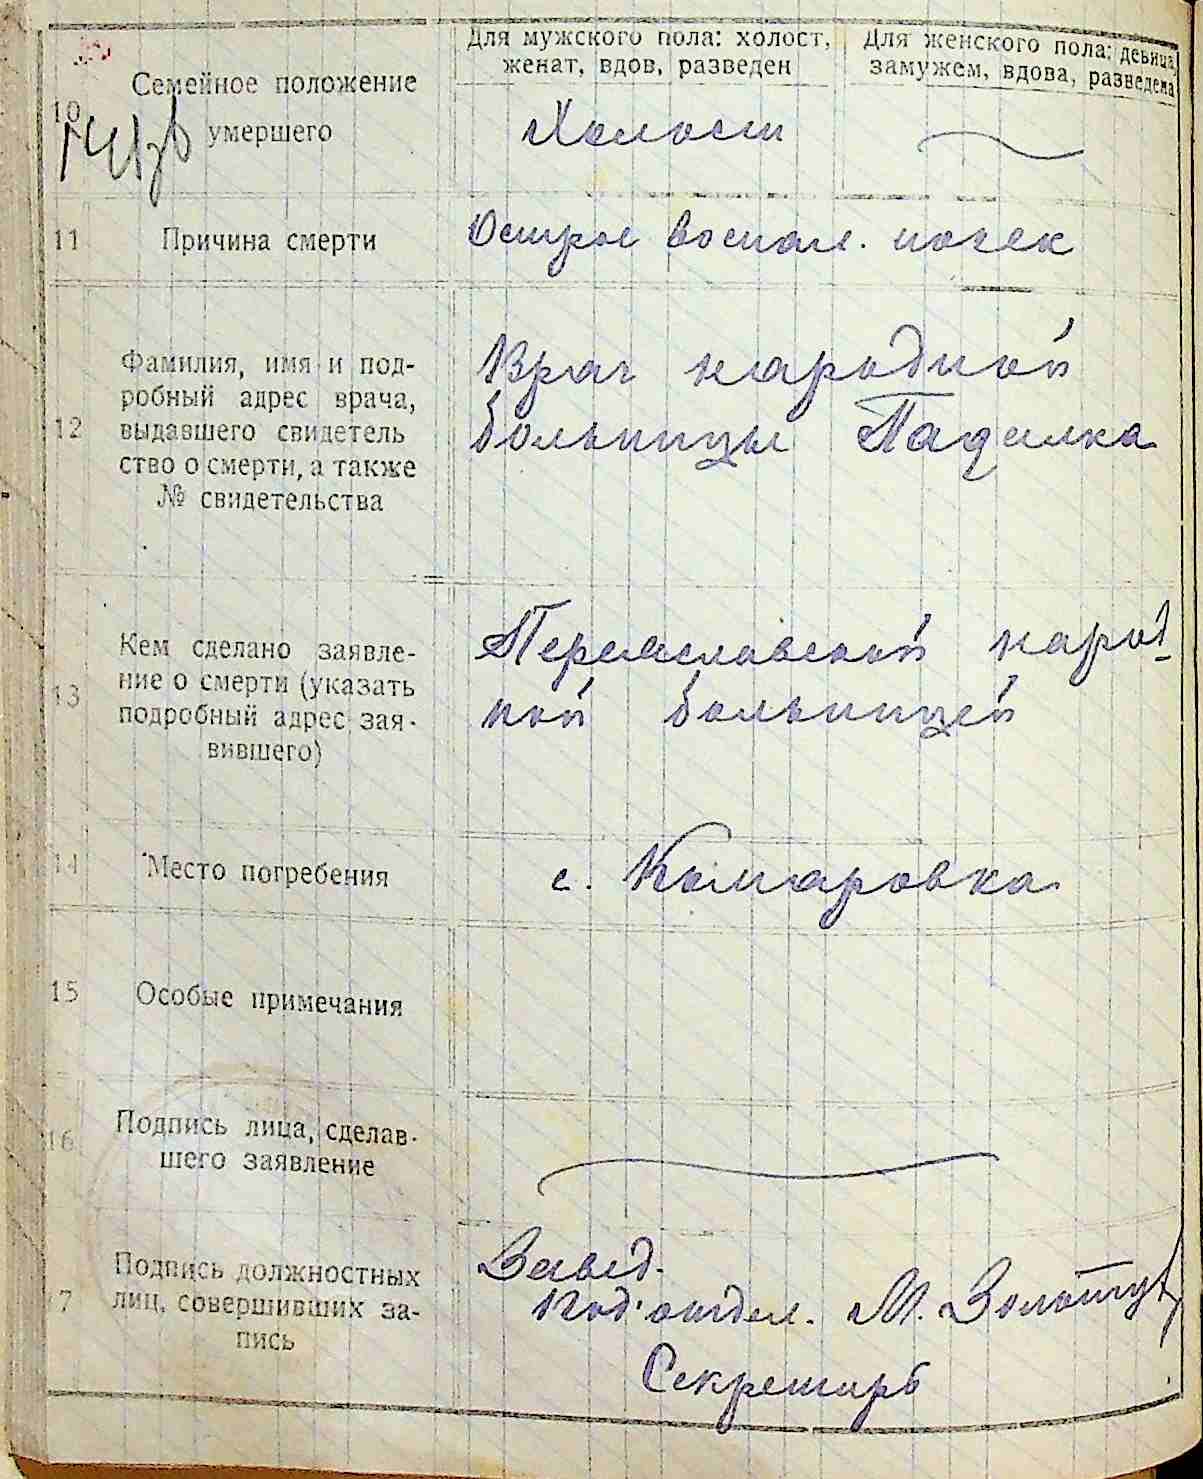 Для мужского пола: холост,
женат, вдов, разведен
Для женского пола: девица,
замужем, вдова, разведена
10
Семейное положение
умершего
Холост
11
Причина смерти
Острое воспал. почек
12
Фамилия, имя и под-
робный адрес врача,
выдавшего свидетель
ство о смерти, а также
№ свидетельства
Врач народной
больницы
13
Кем сделано заявле-
ние о смерти (указать
подробный адрес зая-
вившего)
Переяславской народ
ной больницей
14
Место погребения
с. Комаровка
15
Особые примечания
16
Подпись лица, сделав-
шего заявление
7
Подпись должностных
лиц, совершивших за-
пись
Завед.
Под'отдел. М.
Секретарь